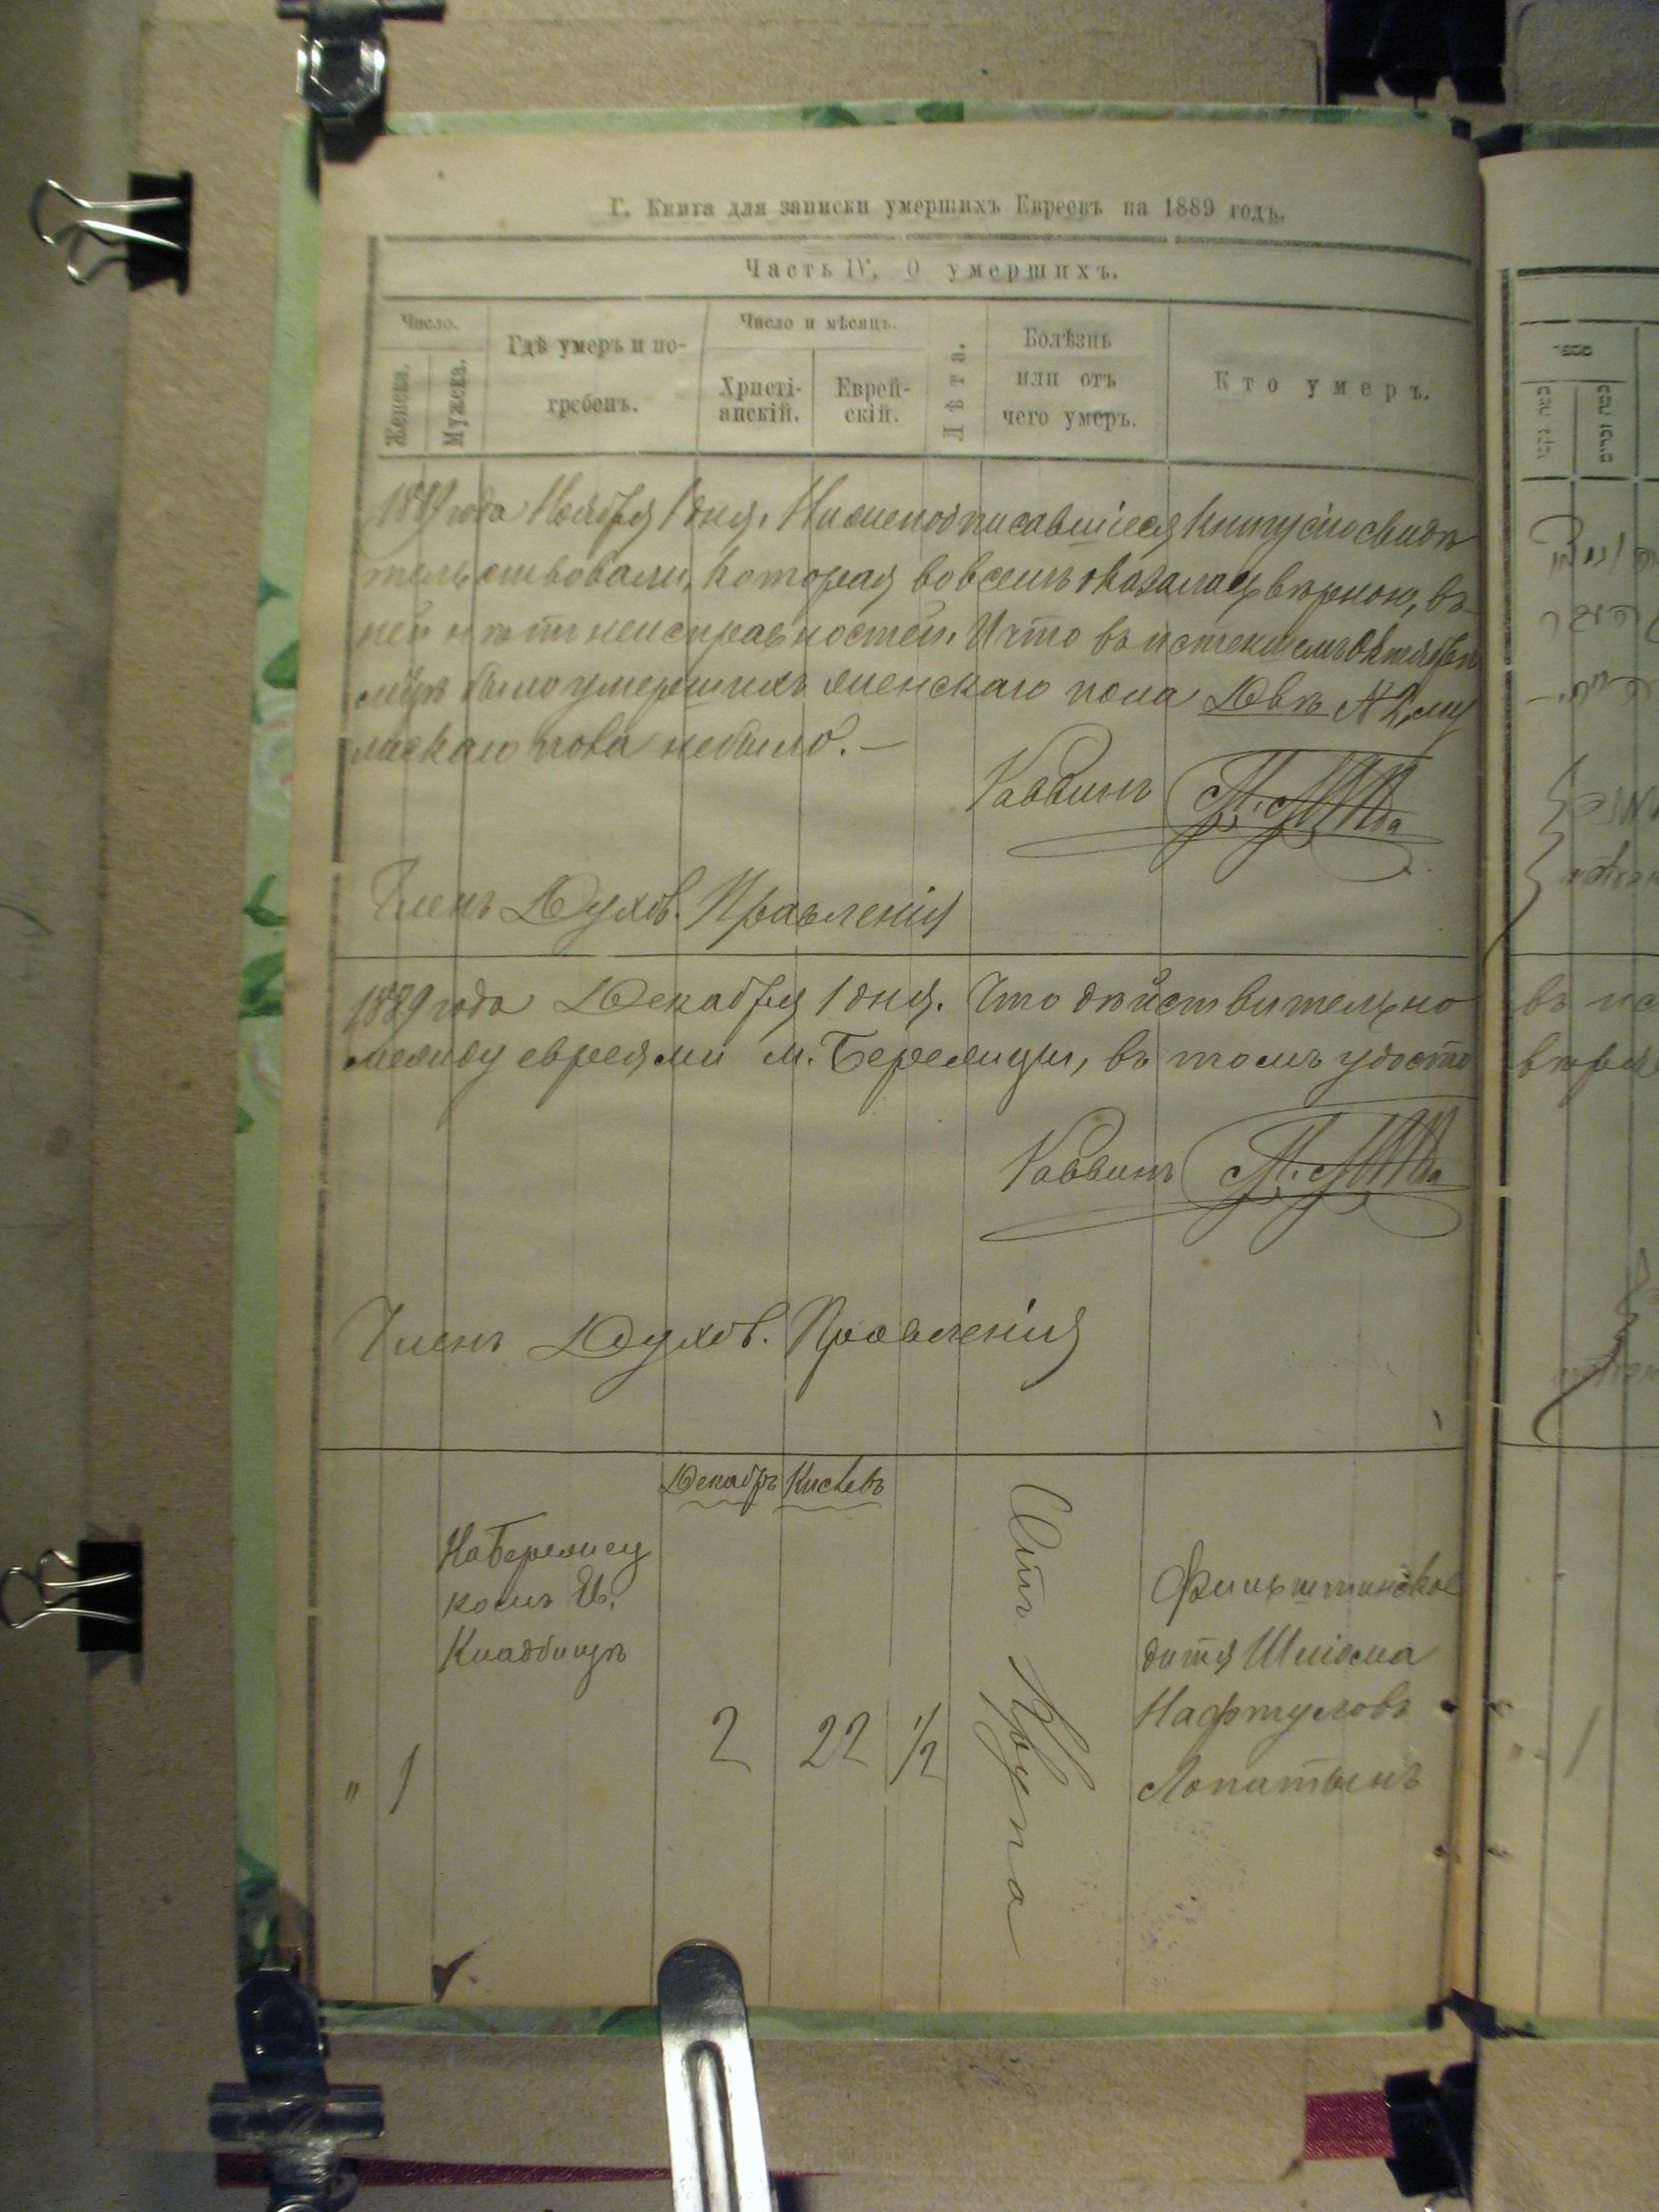 Г. Книга для записки умершихъ Евреевъ на 1889 годъ.
Часть IV. О умершихъ.
Число.
Женска.
Мужеска.
Гдѣ умеръ и по-
гребенъ.
Число и мѣсяцъ.
Христі-
анскій.
Еврей-
скій.
Лѣта.
Болѣзнь
или отъ
чего умеръ.
Кто умеръ.
1889 года Ноября 1 дня. Нижеподписавшіеся книгу сію свидѣ
тельствовали, которая во всемъ оказалась вѣрною, въ
ней нѣтъ неисправностей. И что въ истекшемъ Октябрѣ
м-цѣ было умершихъ женскаго пола Двѣ № 2, му
жескаго пола небыло. —
Раввинъ
Членъ Духов. Правленія
1889 года Декабря 1 дня. Что дѣйствительно
между евреями м. Бережцы, въ томъ удосто
Раввинъ
Членъ Духов. Правленія
Декабрь Кислевъ
На Бережец
комъ Ев.
Кладбищѣ
" 1
2
22
1/2
Отъ Крупа
дитя Шлiома
Нафтуловъ
Лопатынъ